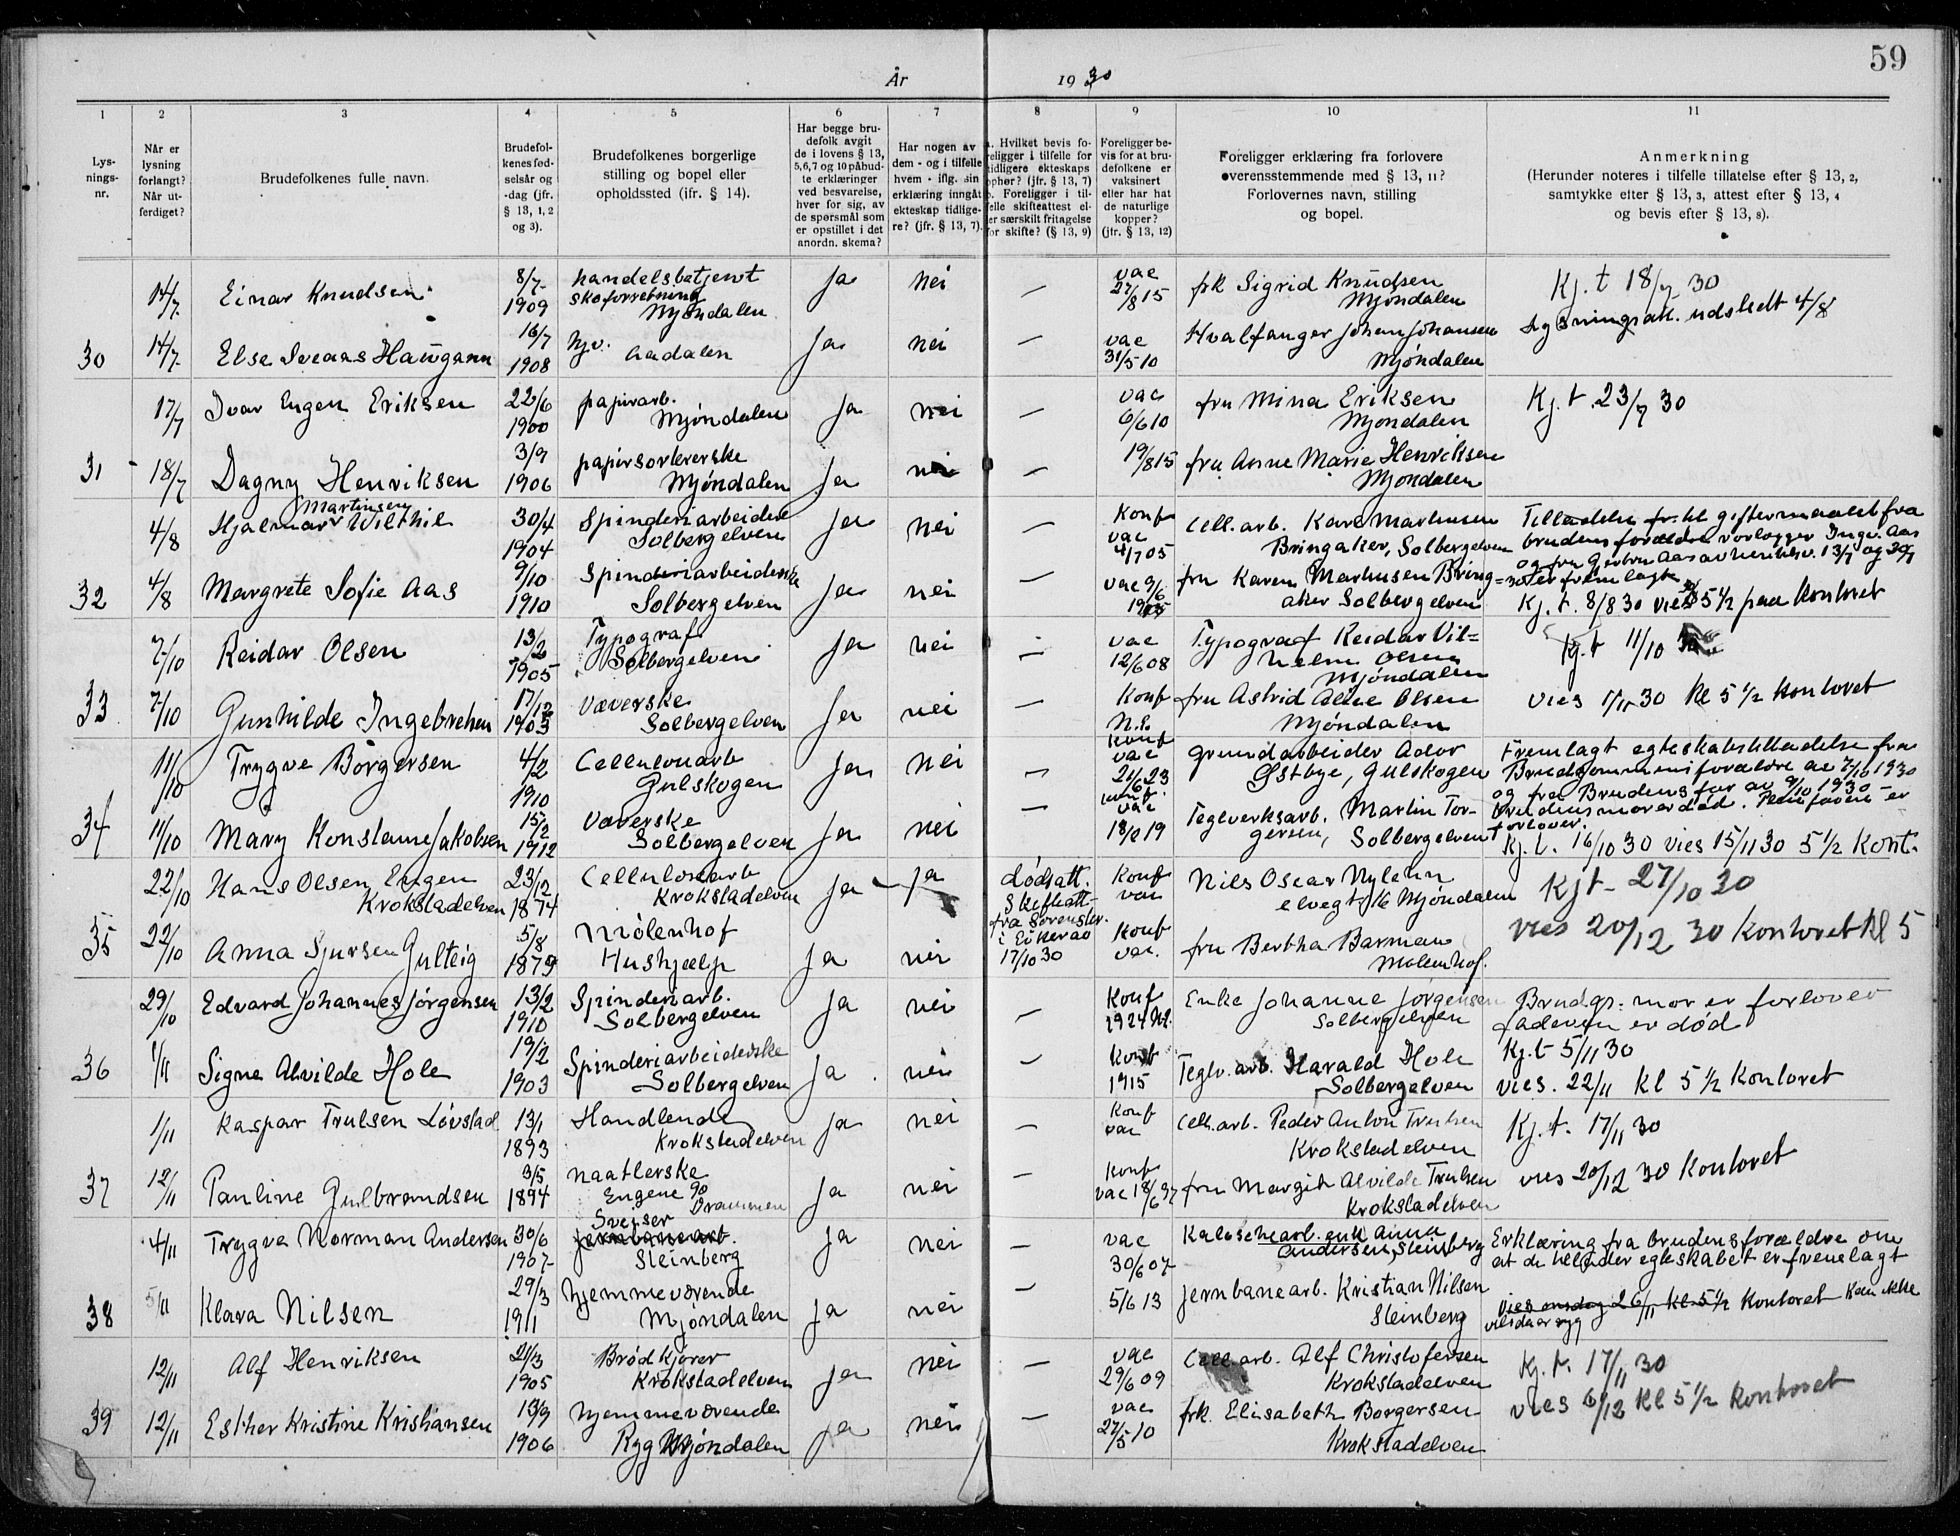 59
År 1930
1 2 3 4 5 6 7 8 9 10 11
Lys-
nings-
nr.
Når er
lysning
forlangt?
Når ut-
ferdiget?
Brudefolkenes fulle navn.
Brudefol-
kenes fød-
selsår og
-dag (jfr.
§ 13, 1, 2
og 3).
Brudefolkenes borgerlige
stilling og bopel eller
opholdssted (ifr. § 14).
Har begge bru-
defolk avgit
de i lovens § 13,
5,6,7 og 10 påbud-
te erklæringer
ved besvarelse,
hver for sig, av
de spørsmål som
er opstillet i det
anordn. skema?
Har nogen av
dem - og i tilfelle
hvem - iflg. sin
erklæring inngått
ekteskap tidlige-
re? (jfr. § 13, 7).
a. Hvilket bevis fo-
religger i tilfelle for
tidligere ekteskaps
ophør? (jfr. § 13, 7)
b. Foreligger i til-
felle skifteattest el-
ler særskilt fritagelse
for skifte? (§ 13, 9)
Foreligger be-
vis for at bru-
defolkene er
vaksinert
eller har hat
de naturlige
kopper?
(jfr. § 13, 12)
Foreligger erklæring fra forlovere
overensstemmende med § 13, 11?
Forlovernes navn, stilling
og bopel.
Anmerkning
(Herunder noteres i tilfelle tillatelse efter § 13, 2,
samtykke efter § 13, 3, attest efter § 13, 4
og bevis efter § 13, 8).
14/7 Einar Knudsen 8/7 1909 handelsbetjent
skoforretning
Mjøndalen Ja nei — vac
27/8 15 frk Sigrid Knudsen
Mjøndalen Kj. t 18/7 30
Lysningsatt. udstedt 4/8
30 14/7 Else Sveaas Haugann 16/7 1908 hjv.
Aadalen Ja nei — vac
31/5 10 Hvalfanger Johan Johansen
Mjøndalen
17/7 Ivar Eugen Eriksen 22/6 1900 papirarb.
Mjøndalen Ja nei — vac
6/6 10 fru Mina Eriksen
Mjøndalen Kj. t. 23/7 30
31 18/7 Dagny Henriksen 3/9 1906 papirsortererske
Mjøndalen Ja nei — 19/8 15 fru Anne Marie Henriksen
Mjøndalen
4/8 Martinsen
Hjalmar Wilthil 30/4 1904 Spinderiarbeider
Solbergelven Ja nei — Konf
vac
4/7 05 Cell. arb. Kare Marhusen
Bringaker, Solbergelven Tilladelse til giftermaalet fra
brudens forældre vorlogger Ingv. Aas
32 4/8 Margrete Sofie Aas 9/10 1910 Spinderiarbeiderske
Solbergelven Ja nei — vac 9/6 fru Karen Marhusen Bring=
aker Solbergelven er fremlagte
Kj. t. 8/8 30 vies 5 1/2 paa Kontoret
7/10 Reidar Olsen 13/2 1905 Typograf
Solbergelven Ja nei — vac
12/6 08 Typograf Reidar Vil=
helm Olsen
Mjøndalen Kj. t 11/10
33 7/10 Gunhilde Ingebretsen 17/12 1903 Væverske
Solbergelven Ja nei — Konf
N.S. fru Astrid Olsen
Mjøndalen vies 1/11 30 Kl 5 1/2 Kontoret
11/10 Trygve Børgersen 4/2 1910 Cellulosearb
Gulskogen Ja nei — Konf
vac
21/6 23 Grundarbeider Ador
Østbye, Gulskogen Fremlagt egteskabstilladelse fra
Brudgommens forældre av 7/10 1930
og fra Brudens far av 9/10 1930
34 11/10 Mary Konstanse Jakobsen 15/2 1912 Væverske
Solbergelven Ja nei — konf.
vac
18/2 19 Teglverksarb. Martin Tor-
gersen, Solbergelven brudens mor er død. er
forlover.
Kj. t. 16/10 30 vies 15/11 30 5 1/2 Kont.
22/10 Hans Olsen Engen
Krokstadelven 23/12 1874 Cellulosearb
Krokstadelven Ja — ja dødsatt.
Skifteatt.
fra Sorenskr.
i Eiker ao
17/10 30 Konf
vac Nils Oscar Nylenn
Mjøndalen Kj t- 27/10 30
vies 20/12 30 Kontoret Kl 5
35 22/10 Anna Sjursen Gulteig 5/8 1879 Mølenhof
Hushjælp Ja nei Konf
vac. fru Bertha Barman
Molenhof.
29/10 Edvard Johannes Jørgensen 13/2 1910 Spinderiarb.
Solbergelven Ja nei — Konf
1924 Enke Johanne Jørgensen
Solbergelven Brudgs. mor er forlover
faderen er død
36 1/11 Signe Alvilde Hole 19/2 1903 Spinderiarbeiderske
Solbergelven Ja nei — Konf
1915 Teglv. arb. Harald Hole
Solbergelven Kj. t 5/11 30
vies. 22/11 Kl 5 1/2 Kontoret
1/11 Kaspar Trulsen Løvstad 13/1 1893 Handlende
Krokstadelven Ja nei — Konf
vac Cell. arb. Peder Anton Trulsen
Krokstadelven Kj. t. 17/11 30
37 12/11 Pauline Gulbrandsen 3/5 1894 naatlerske
Engene 90
Drammen Ja nei — Konf
vac 18/6 37 fru Margit Alvilde Trulsen
Krokstadelven vies 20/12 30 Kontoret
4/11 Trygve Norman Andersen 30/6 1907 Sveiser
jernbanearb.
Steinberg Ja nei — vac
30/6 07 Kalosjearb. enk Anna
Andersen, Steinberg Erklæring fra brudens forældre om
at de tillader egteskabet er fremlagt
38 5/11 Klara Nilsen 29/3 1911 hjemmeværende
Mjøndalen Ja nei — 5/6 13 jernbanearb. Kristian Nilsen
Steinberg vies onsdag 26/11 Kl 5 1/2 Kontoret Kan ikke
vies da er syg
12/11 Alf Henriksen 21/3 1905 Brødkjører
Krokstadelven Ja nei — vac
29/6 09 Cell. arb. Alf Christofersen
Krokstadelven Kj. t. 17/11 30
39 12/11 Esther Kristine Kristiansen 13/9 1906 hjemmeværende
Ryg Mjøndalen Ja nei — vac
27/5 10 frk. Elisabeth Borgersen
Krokstadelven vies 6/12 Kl 5 1/2 Kontoret